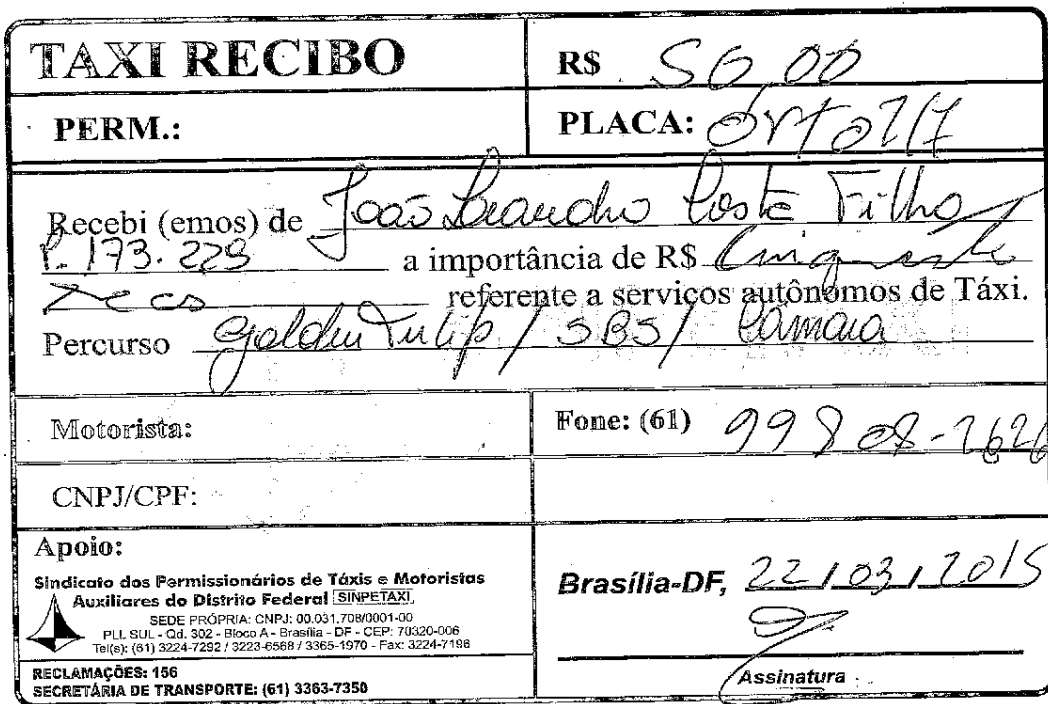 TAXI RECIBO
R$ 50,00
PERM.:
PLACA:
Recebi (emos) de João Leandro Costa Filho
P. 173.229 a importância de R$ Cinquenta
referente a serviços autônomos de Táxi.
Percurso Golden Tulip / SBS / Câmara
Motorista:
Fone: (61) 99808-2626
CNPJ/CPF:
Apoio:
Sindicato dos Permissionários de Táxis e Motoristas
Auxiliares do Distrito Federal SINPETAXI
SEDE PRÓPRIA: CNPJ: 00.031.708/0001-00
PLL SUL - Qd. 302 - Bloco A - Brasília - DF - CEP: 70320-006
Tel(s): (61) 3224-7292 / 3223-6568 / 3365-1970 - Fax: 3224-7196
RECLAMAÇÕES: 156
SECRETÁRIA DE TRANSPORTE: (61) 3363-7350
Brasília-DF, 22/03/2015
Assinatura